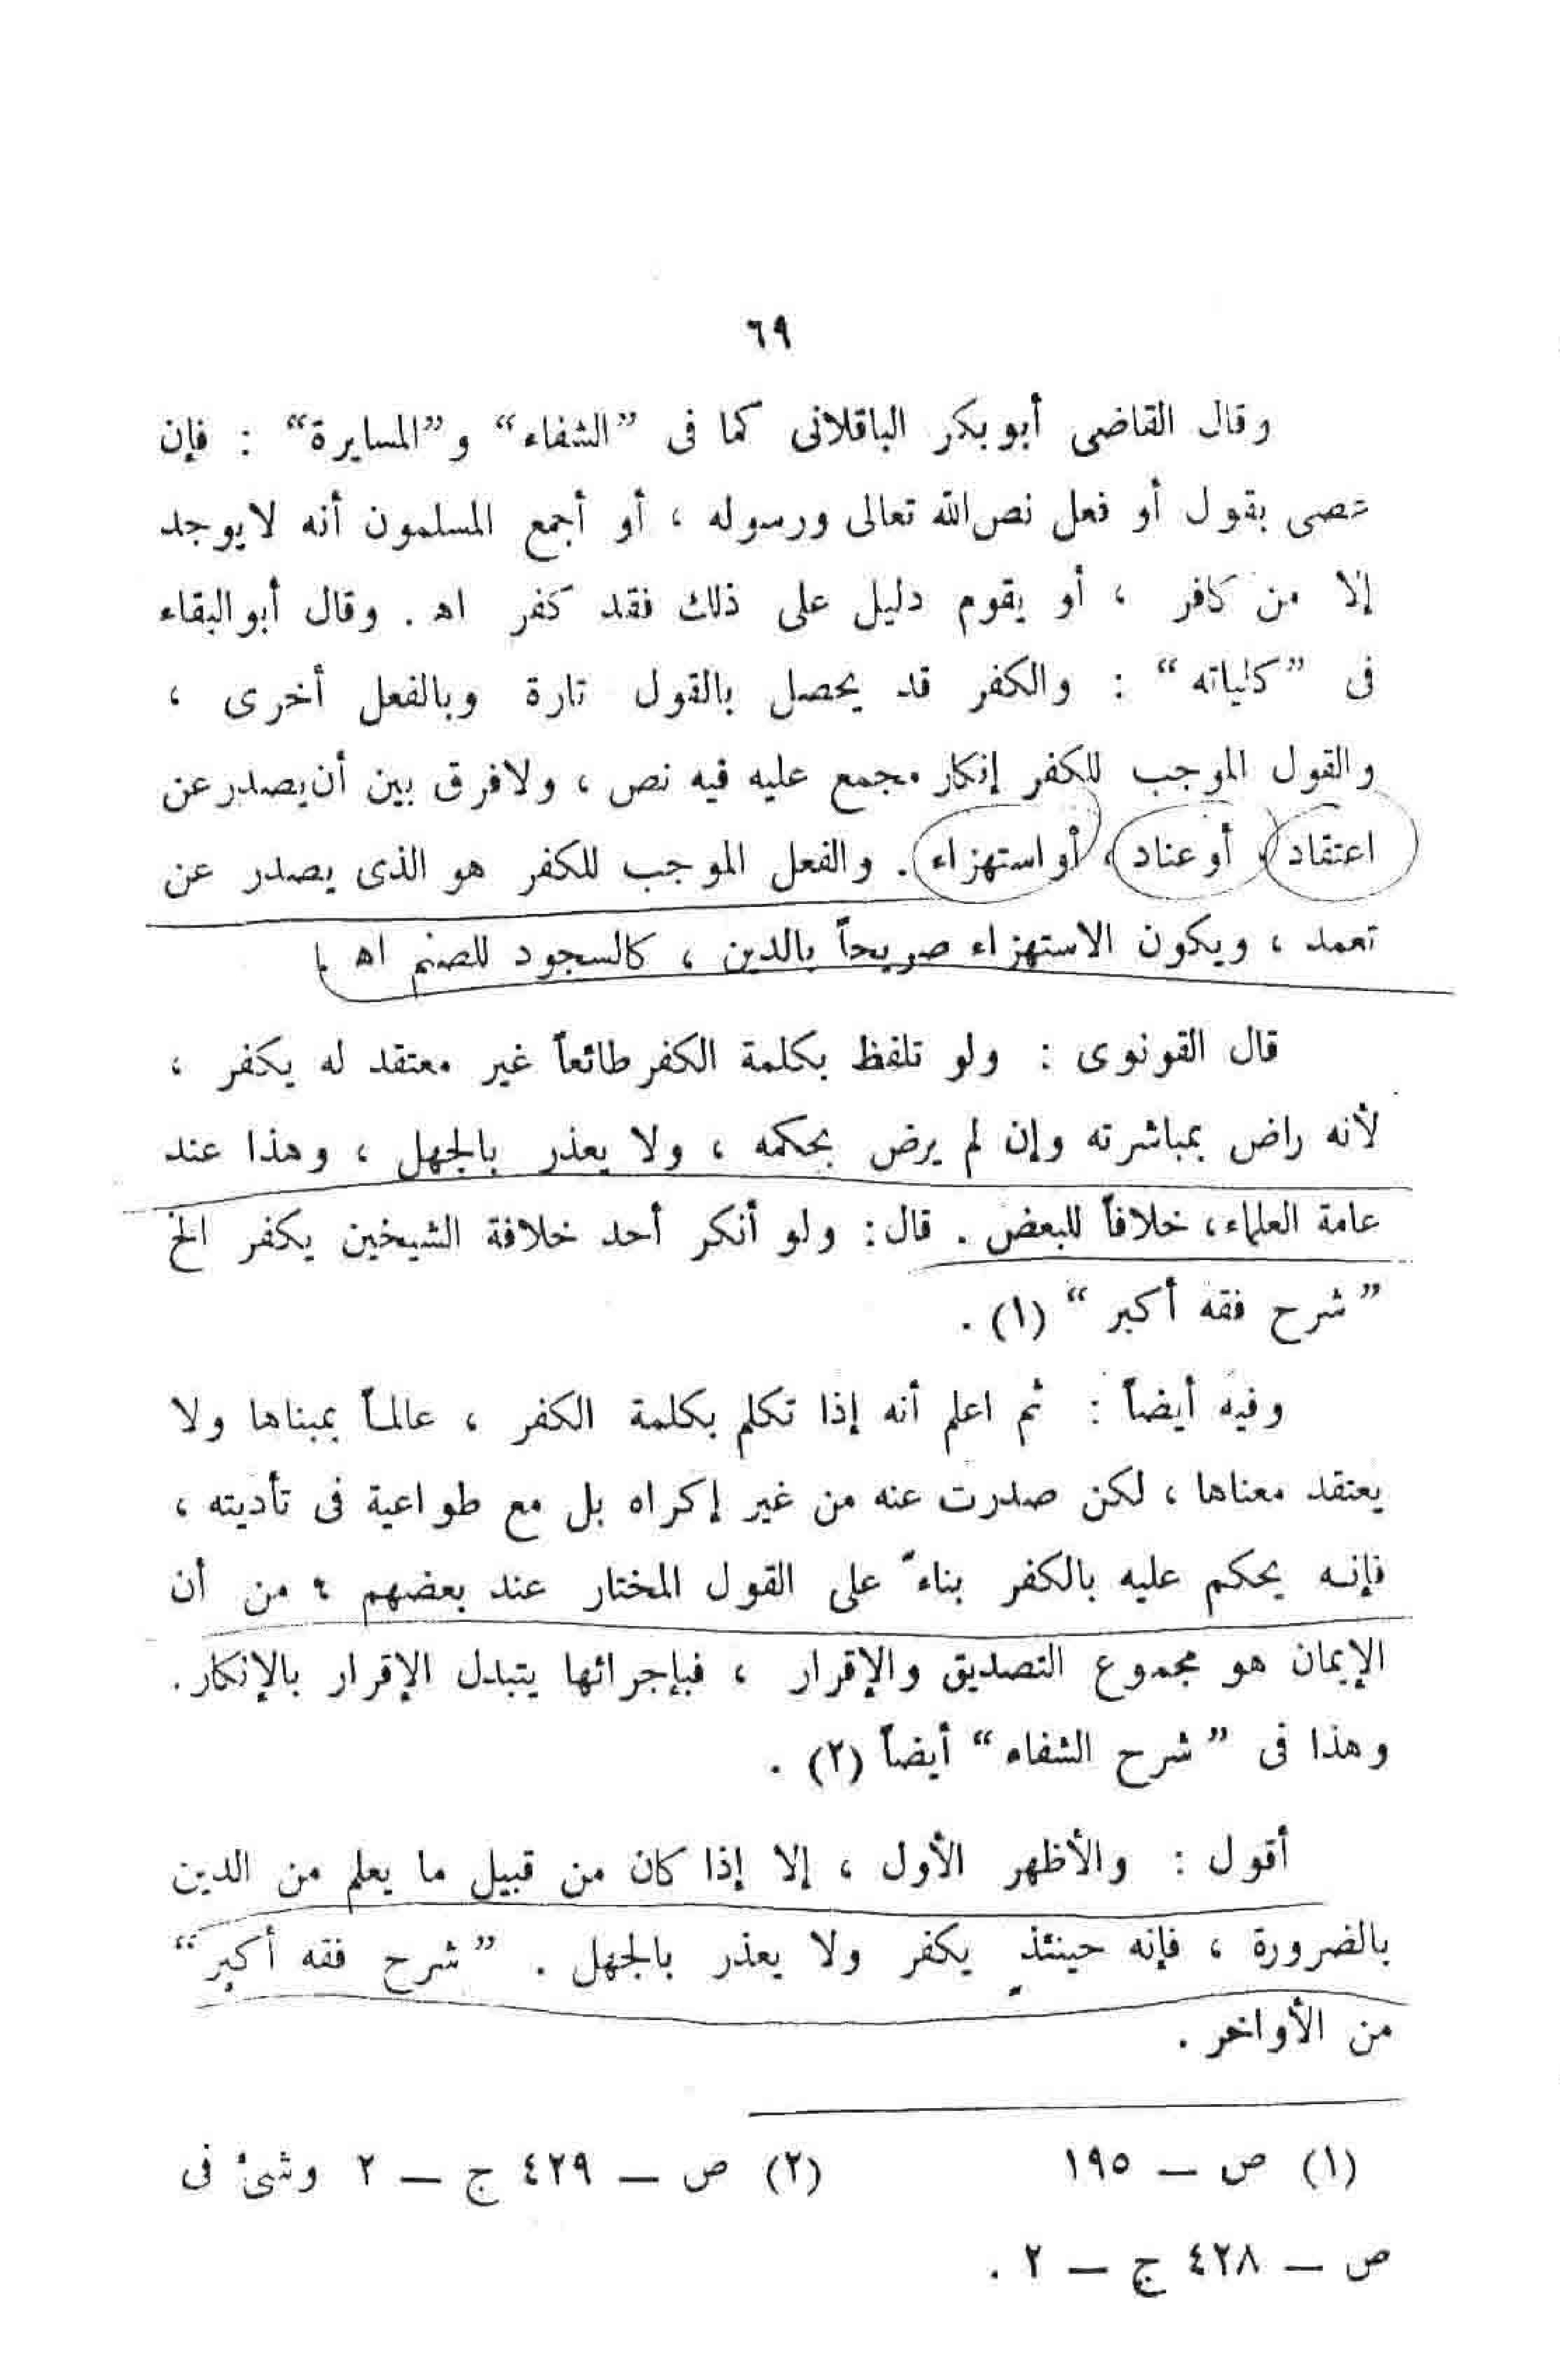 ٦٩
وقال القاضى أبوبكر الباقلانى كما فى ”الشفاء“ و”المسايرة“ : فإن
عصى بقول أو فعل نص الله تعالى ورسوله ، أو أجمع المسلمون أنه لايوجد
إلا من كافر ، أو يقوم دليل على ذلك فقد كفر اه . وقال أبوالبقاء
فى ”كلياته“ : والكفر قد يحصل بالقول تارة وبالفعل أخرى ،
والقول الموجب للكفر إنكار مجمع عليه فيه نص ، ولافرق بين أن يصدر عن
اعتقاد ، أو عناد ، أو استهزاء . والفعل الموجب للكفر هو الذى يصدر عن
تعمد ، ويكون الاستهزاء صريحاً بالدين ، كالسجود للصنم اه .
قال القونوى : ولو تلفظ بكلمة الكفر طائعاً غير معتقد له يكفر ،
لأنه راض بمباشرته وإن لم يرض بحكمه ، ولا يعذر بالجهل ، وهذا عند
عامة العلماء، خلافاً للبعض . قال: ولو أنكر أحد خلافة الشيخين يكفر الخ
”شرح فقه أكبر“ (١) .
وفيه أيضاً : ثم اعلم أنه إذا تكلم بكلمة الكفر ، عالماً بمبناها ولا
يعتقد معناها ، لكن صدرت عنه من غير إكراه بل مع طواعية فى تأديته ،
فإنه يحكم عليه بالكفر بناءً على القول المختار عند بعضهم ، من أن
الإيمان هو مجموع التصديق والإقرار ، فبإجرائها يتبدل الإقرار بالإنكار.
وهذا فى ”شرح الشفاء“ أيضاً (٢) .
أقول : والأظهر الأول ، إلا إذا كان من قبيل ما يعلم من الدين
بالضرورة ، فإنه حينئذٍ يكفر ولا يعذر بالجهل . ”شرح فقه أكبر“
من الأواخر .
(١) ص – ١٩٥ (٢) ص – ٤٢٩ ج – ٢ وشئ فى
ص – ٤٢٨ ج – ٢ .